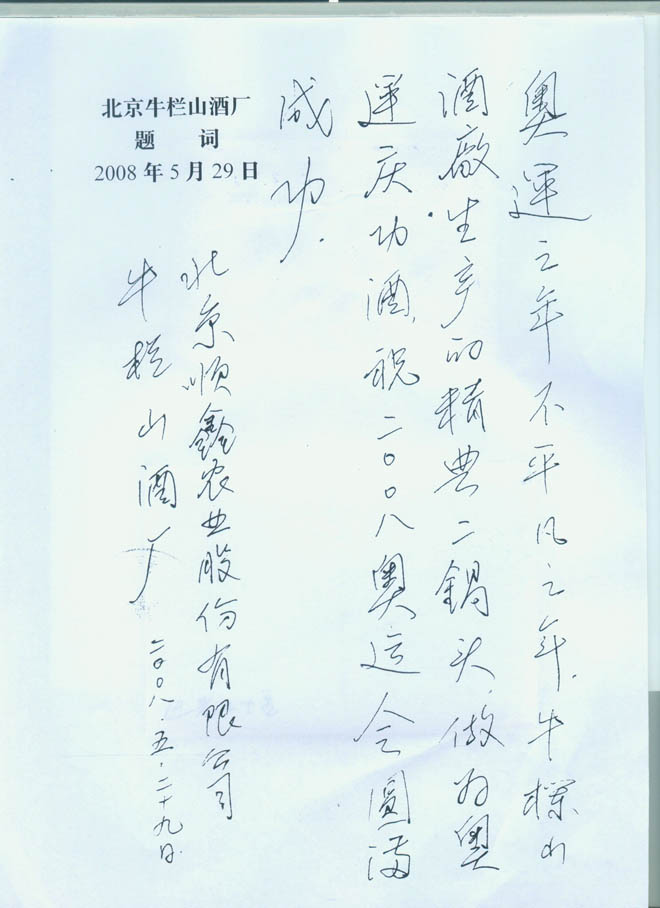 北京牛栏山酒厂
题 词
2008年5月29日
奥运之年不平凡之年，牛栏山
酒廠生产的精典二锅头，做为奥
运庆功酒，祝二〇〇八奥运会圆满
成功．
北京顺鑫农业股份有限公司
牛栏山酒厂
二〇〇八．五．二十九日